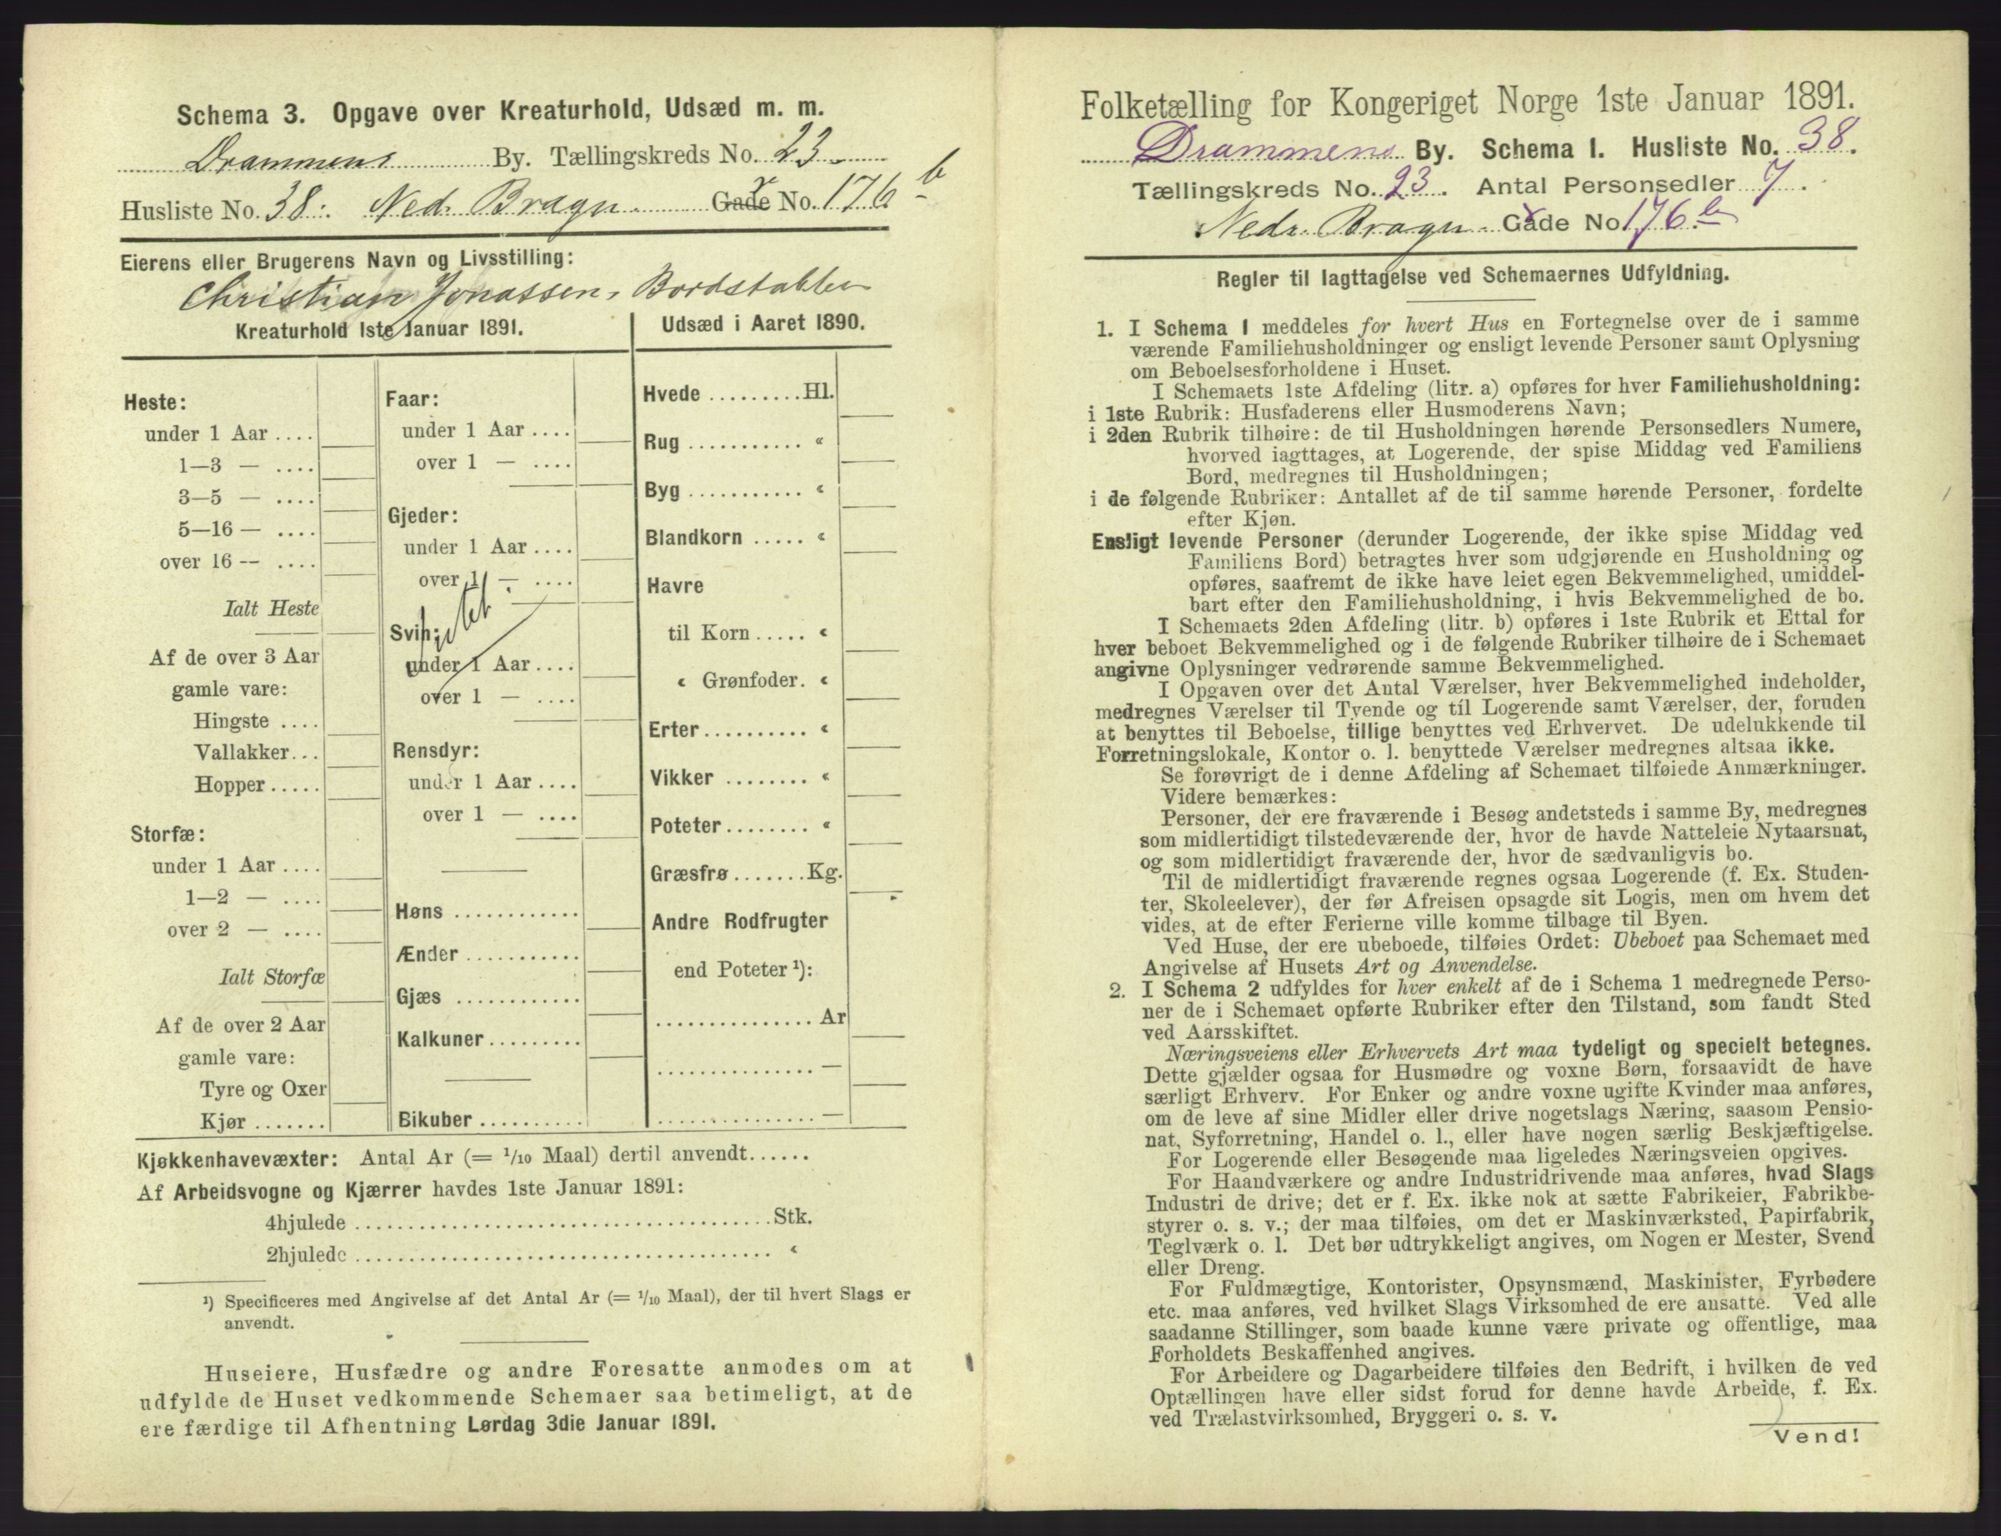 Schema 3. Opgave over Kreaturhold, Udsæd m. m.
Drammens By. Tællingskreds No. 23.
Husliste No. 38. Ned. Bragn. Gade No. 176 b
Eierens eller Brugerens Navn og Livsstilling:
Christian Jonassen, Bordstabler
Kreaturhold 1ste Januar 1891.
Heste:
under 1 Aar ....
1—3 — ....
3—5 — ....
5—16 — ....
over 16 — ....
Ialt Heste
Af de over 3 Aar
gamle vare:
Hingste ....
Vallakker...
Hopper.....
Storfæ:
under 1 Aar ....
1—2 — ....
over 2 — ....
Ialt Storfæ
Af de over 2 Aar
gamle vare:
Tyre og Oxer
Kjør .......
Faar:
under 1 Aar ....
over 1 — ....
Gjeder:
under 1 Aar ....
over 1 — ....
Svin:
under 1 Aar ....
over 1 — ....
Rensdyr:
under 1 Aar ....
over 1 — ....
Høns ...........
Ænder ...........
Gjæs ............
Kalkuner.........
Bikuber ..........
Udsæd i Aaret 1890.
Hvede .........Hl.
Rug ........... «
Byg ........... «
Blandkorn ..... «
Havre
til Korn ..... «
« Grønfoder. «
Erter.......... «
Vikker ........ «
Poteter........ «
Græsfrø.......Kg.
Andre Rodfrugter
end Poteter ¹):
...............Ar
...............—
...............—
Kjøkkenhavevæxter: Antal Ar (= 1/10 Maal) dertil anvendt......
Af Arbeidsvogne og Kjærrer havdes 1ste Januar 1891:
4hjulede ........................................Stk.
2hjulede........................................ «
¹) Specificeres med Angivelse af det Antal Ar (= 1/10 Maal), der til hvert Slags er
anvendt.
Huseiere, Husfædre og andre Foresatte anmodes om at
udfylde de Huset vedkommende Schemaer saa betimeligt, at de
ere færdige til Afhentning Lørdag 3die Januar 1891.
Folketælling for Kongeriget Norge 1ste Januar 1891.
Drammens By. Schema 1. Husliste No. 38.
Tællingskreds No. 23. Antal Personsedler 7.
Nedr. Bragn. Gade No. 176 b
Regler til Iagttagelse ved Schemaernes Udfyldning.
1. I Schema 1 meddeles for hvert Hus en Fortegnelse over de i samme
værende Familiehusholdninger og ensligt levende Personer samt Oplysning
om Beboelsesforholdene i Huset.
I Schemaets 1ste Afdeling (litr. a) opføres for hver Familiehusholdning:
i 1ste Rubrik: Husfaderens eller Husmoderens Navn;
i 2den Rubrik tilhøire: de til Husholdningen hørende Personsedlers Numere,
hvorved iagttages, at Logerende, der spise Middag ved Familiens
Bord, medregnes til Husholdningen;
i de følgende Rubriker: Antallet af de til samme hørende Personer, fordelte
efter Kjøn.
Ensligt levende Personer (derunder Logerende, der ikke spise Middag ved
Familiens Bord) betragtes hver som udgjørende en Husholdning og
opføres, saafremt de ikke have leiet egen Bekvemmelighed, umiddel-
bart efter den Familiehusholdning, i hvis Bekvemmelighed de bo.
I Schemaets 2den Afdeling (litr. b) opføres i 1ste Rubrik et Ettal for
hver beboet Bekvemmelighed og i de følgende Rubriker tilhøire de i Schemaet
angivne Oplysninger vedrørende samme Bekvemmelighed.
I Opgaven over det Antal Værelser, hver Bekvemmelighed indeholder,
medregnes Værelser til Tyende og til Logerende samt Værelser, der, foruden
at benyttes til Beboelse, tillige benyttes ved Erhvervet. De udelukkende til
Forretningslokale, Kontor o. l. benyttede Værelser medregnes altsaa ikke.
Se forøvrigt de i denne Afdeling af Schemaet tilføiede Anmærkninger.
Videre bemærkes:
Personer, der ere fraværende i Besøg andetsteds i samme By, medregnes
som midlertidigt tilstedeværende der, hvor de havde Natteleie Nytaarsnat,
og som midlertidigt fraværende der, hvor de sædvanligvis bo.
Til de midlertidigt fraværende regnes ogsaa Logerende (f. Ex. Studen-
ter, Skoleelever), der før Afreisen opsagde sit Logis, men om hvem det
vides, at de efter Ferierne ville komme tilbage til Byen.
Ved Huse, der ere ubeboede, tilføies Ordet: Ubeboet paa Schemaet med
Angivelse af Husets Art og Anvendelse.
2. I Schema 2 udfyldes for hver enkelt af de i Schema 1 medregnede Perso-
ner de i Schemaet opførte Rubriker efter den Tilstand, som fandt Sted
ved Aarsskiftet.
Næringsveiens eller Erhvervets Art maa tydeligt og specielt betegnes.
Dette gjælder ogsaa for Husmødre og voxne Børn, forsaavidt de have
særligt Erhverv. For Enker og andre voxne ugifte Kvinder maa anføres,
om de leve af sine Midler eller drive nogetslags Næring, saasom Pensio-
nat, Syforretning, Handel o. l., eller have nogen særlig Beskjæftigelse.
For Logerende eller Besøgende maa ligeledes Næringsveien opgives.
For Haandværkere og andre Industridrivende maa anføres, hvad Slags
Industri de drive; det er f. Ex. ikke nok at sætte Fabrikeier, Fabrikbe-
styrer o. s. v.; der maa tilføies, om det er Maskinværksted, Papirfabrik,
Teglværk o. l. Det bør udtrykkeligt angives, om Nogen er Mester, Svend
eller Dreng.
For Fuldmægtige, Kontorister, Opsynsmænd, Maskinister, Fyrbødere
etc. maa anføres, ved hvilket Slags Virksomhed de ere ansatte. Ved alle
saadanne Stillinger, som baade kunne være private og offentlige, maa
Forholdets Beskaffenhed angives.
For Arbeidere og Dagarbeidere tilføies den Bedrift, i hvilken de ved
Optællingen have eller sidst forud for denne havde Arbeide, f. Ex.
ved Trælastvirksomhed, Bryggeri o. s. v.
Vend!